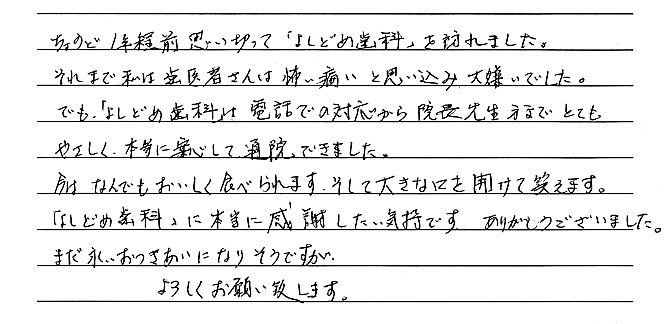 ちょうど1年程前思い切って「よしどめ歯科」を訪れました。
それまで私は歯医者さんは怖い痛いと思い込み大嫌いでした。
でも、「よしどめ歯科」は電話での対応から院長先生まで とても
やさしく、本当に安心して通院できました。
今は なんでもおいしく食べられます、そして大きな口を開けて笑えます。
「よしどめ歯科」に本当に感謝したい気持です ありがとうございました。
まだ永いおつきあいになりそうですが、
よろしくお願い致します。